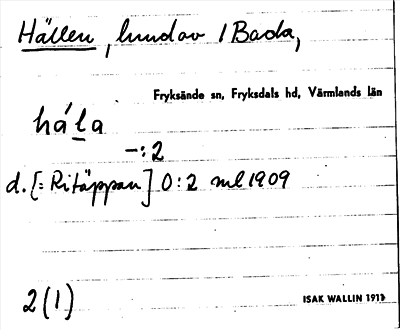 Hällen, lundav / Bada,
Fryksände sn, Fryksdals hd, Värmlands län
háḻa
–:2
d. [: Ritäppan] 0:2 ml 1909
2(1)
ISAK WALLIN 1911